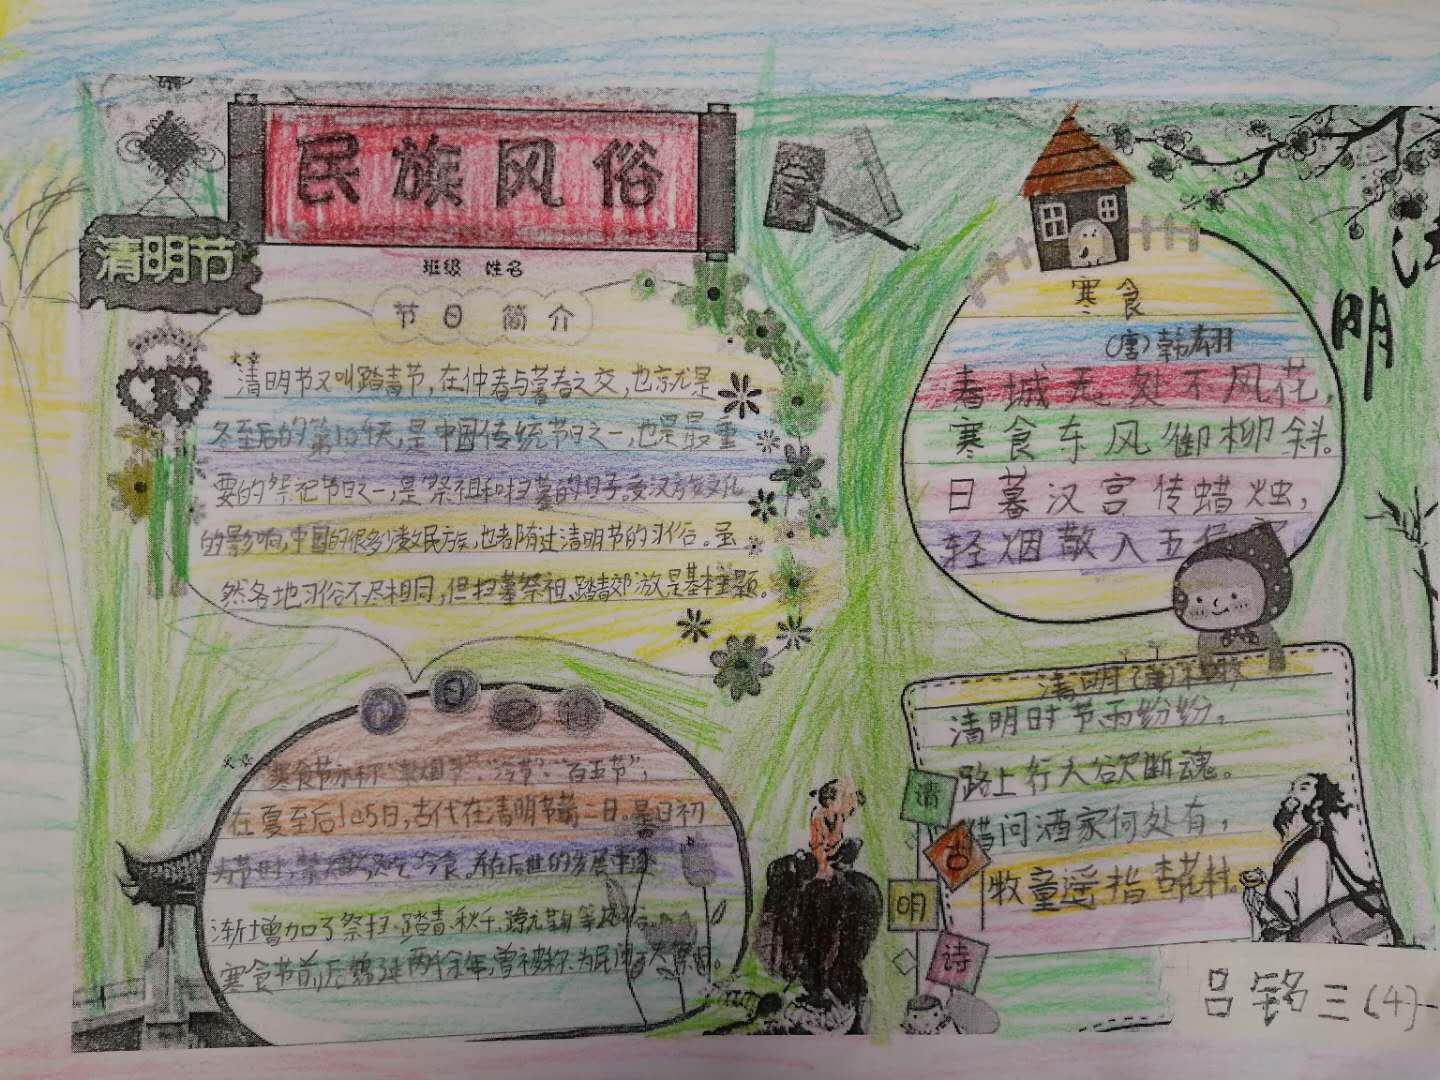 民族风俗
清明节
班级 姓名
节日简介
文章
清明节又叫踏青节，在仲春与暮春之交，也就是
冬至后的第104天，是中国传统节日之一，也是最重
要的祭祀节日之一，是祭祖和扫墓的日子。受汉族文化
的影响，中国的很多少数民族，也都有过清明节的习俗。虽
然各地习俗不尽相同，但扫墓祭祖、踏青郊游是基本主题。
节日
文章
寒食节亦称“禁烟节”、“冷节”、“百五节”，
在夏至后105日，古代在清明节前一日。是日初
为节时，禁烟火，只吃冷食。并在后世的发展中逐
渐增加了祭扫、踏青、秋千、蹴
寒食节前后绵延两千余年，曾被称为民间
寒食
（唐）韩翃
春城无处不风花，
寒食东风御柳斜。
日暮汉宫传蜡烛，
轻烟散入五
明
清明
清明时节雨纷纷，
路上行人欲断魂。
借问酒家何处有，
牧童遥指杏花村。
清
古
明
诗
吕铭 三(4)